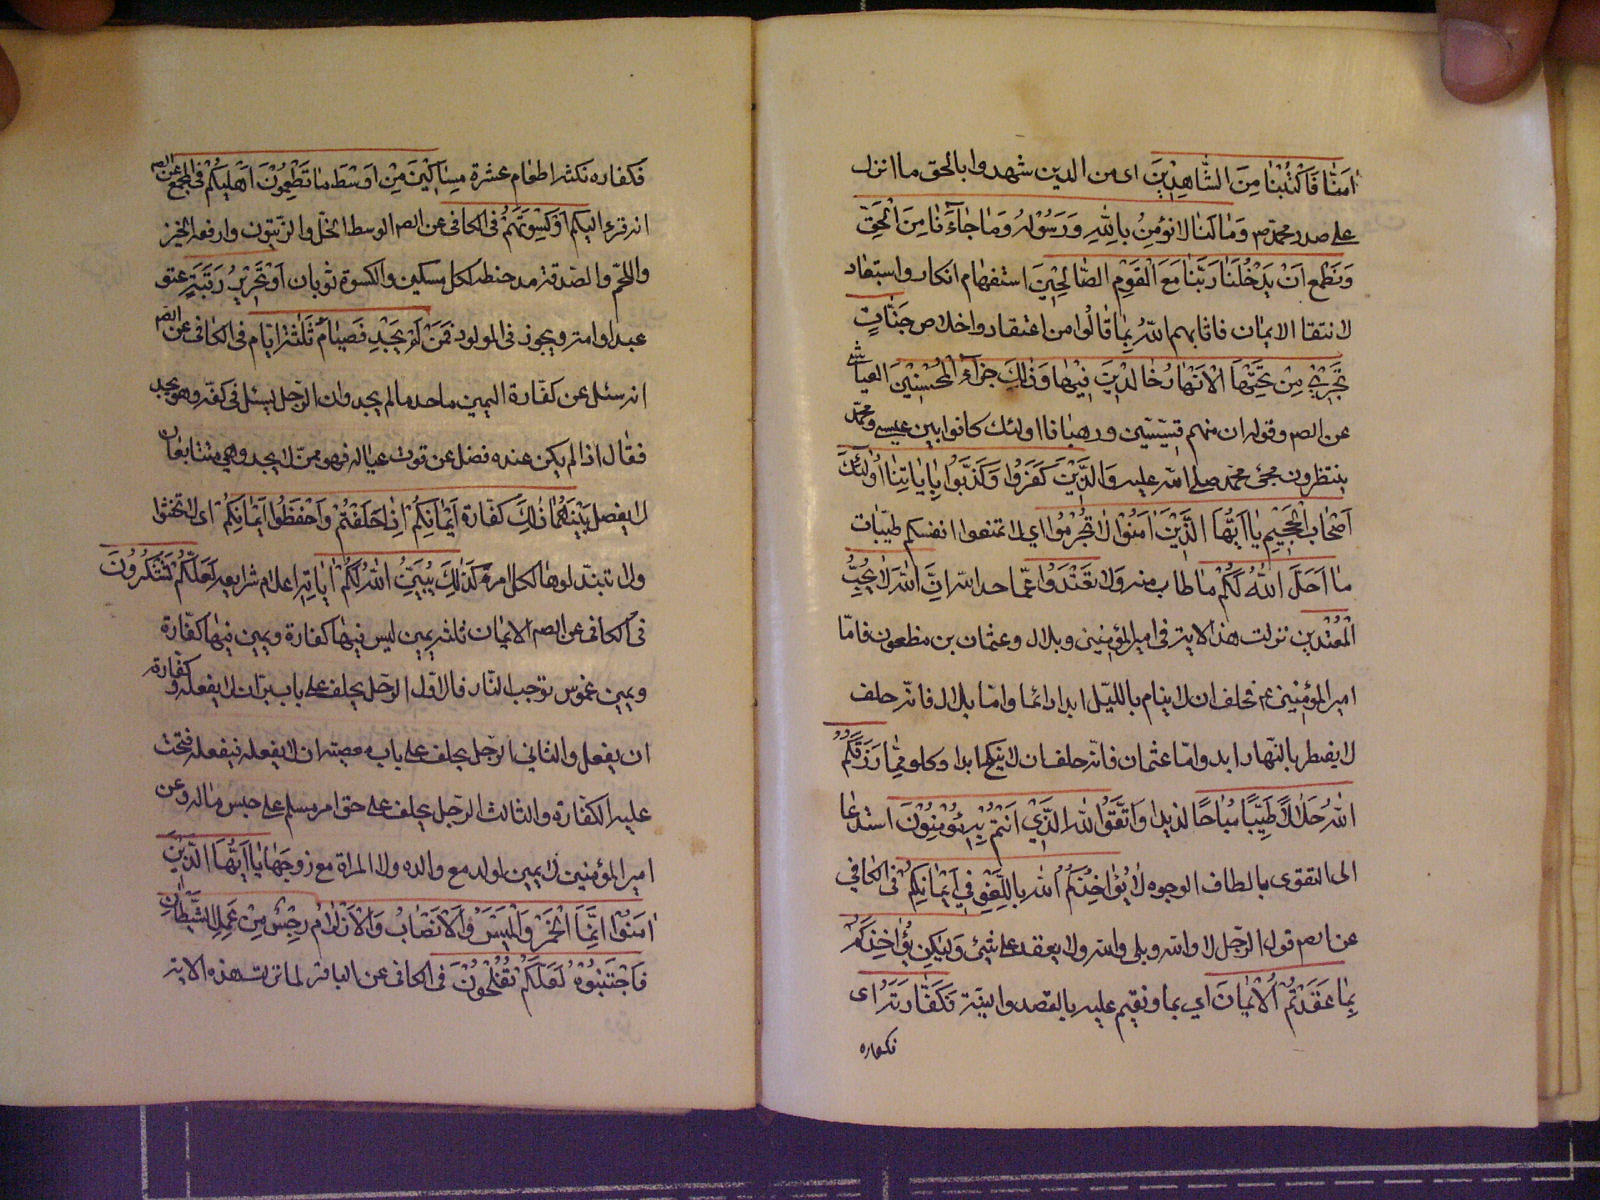 اٰمَنّٰا فَاكْتُبْنٰا مِنَ الشّٰاهِدِيْنَ اى من الذين شهدوا بالحق ما انزل
على صدر محمد ص وَمٰا لَنٰا لانُؤْمِنُ بِاللّٰهِ وَرَسُوْلِهِ وَمٰا جٰاءَنٰا مِنَ الْحَقِّ
وَنَطْمَع اَنْ يُدْخِلَنٰا رَبُّنٰا مَعَ الْقَوْمِ الصّٰالِحِيْنَ استفهام انكار واستبعاد
لانتقا الايمان فاثابهم اللّٰهُ بِمٰا قٰالُوا من اعتقاد واخلاص جَنّٰاتٍ
تَجْرِيْ مِنْ تَحْتِهَا الْاَنْهٰارُ خٰالِدِيْنَ فِيْهٰا وَذٰلِكَ جَزٰآءُ الْمُحْسِنِيْنَ العياشى
عن الصم وقوله ان منهم قسيسين ورهبانا اولئك كانوا بين عيسى ومحمد
ينتظرون مجئ محمد صلى الله عليه وَالَّذِيْنَ كَفَرُوْا وَكَذَّبُوا بِاٰيٰاتِنٰا اُولٰئِكَ
اَصْحٰابُ الْجَحِيْمِ يٰا اَيُّهَا الَّذِيْنَ اٰمَنُوْا لٰاتُحَرِّمُوْا اي لا تمنعوا انفسكم طَيِّبٰات
مٰا اَحَلَّ اللّٰهُ لَكُمْ ما طاب منه وَلٰا تَعْتَدُوا عما حد الله اِنَّ اللّٰهَ لٰا يُحِبُّ
الْمُعْتَدِين نزلت هذه الاية فى امير المؤمنين وبلال وعثمان بن مظعون فامّا
امير المؤمنين ع فحلف ان لا ينام بالليل ابدا دائما واما بلال فانه حلف
لا يفطر بالنهار ابد وامّا عثمان فانه حلف ان لا ينكح ابدا وكلو مِمّٰا رَزَقَكُمُ
اللّٰهُ حَلٰالًا طَيِّبًا مُبٰاحًا لذيذا وَاتَّقُوا اللّٰهَ الَّذِيْ اَنْتُمْ بِهِ مُؤْمِنُوْنَ استدعا
الى التقوى بالطاف الوجوه لٰا يُؤٰاخِذُكُمُ اللّٰه بِاللَّغْوِ فِيْ اَيْمٰانِكُمْ فى الكافي
عن الصم قول الرجل لا والله وبلى والله ولا يعقد على شئ وَلٰكِن يُؤٰاخِذُكُمْ
بِمٰا عَقَّدْتُمُ الْاَيْمٰانَ اي بما وثقتم عليه بالقصد والنية فَكَفّٰارَتُهُ اى
فكفاره
فَكفاره نكثه اطعٰام عشرة مسٰاكِيْنَ مِنْ اَوْسَطِ مٰا تُطْعِمُوْنَ اَهْلِيْكُمْ فى المجمع عن الصم
انه قرء اليكم اَوْكِسْوَتُهُمْ فى الكافى عن الصم الوسط الخل والزيتون وارفعه الخبز
واللحم والصدقة مد حنطه لكل مسكين والكسوة ثوبان اَوْ تَحْرِيْرُ رَقَبَةٍ عتق
عبد او امة ويجوز فى المولود فَمَنْ لَمْ يَجِدْ فَصِيٰامُ ثَلٰثَةِ اَيّٰام فى الكافى عن الصم
انه سئل عن كفّارة اليمين ما حد ما لم يجد وان الرجل يسئل فى كفه وهو يجد
فقال اذا لم يكن عنده فضل عن قوت عياله فهو ممن لا يجد وهى متتابعان
لا يفصل بَيْنَهُمٰا ذٰلِكَ كَفّٰارَةُ اَيْمٰانِكُمْ اِذٰا حَلَفْتُمْ وَاحْفَظُوا اَيْمٰانَكُمْ اى لا تحنثوا
ولا تبتدلوها لكل امرء كَذٰلِكَ يُبَيِّنُ اللّٰهُ لَكُمْ اٰيٰاتِهِ اعلام شرايعه لَعَلَّكُمْ تَشْكُرُوْنَ
فى الكافى عن الصم الايمان ثلثه يمين ليس فيها كفارة ويمين فيها كفّارة
ويمين غموس توجب النار فالاول الرجل يحلف على باب بر ان لا يفعله وكفارته
ان يفعل والثاني الرجل يحلف على باب معصية ان لا يفعله فيفعله فتجب
عليه الكفّارة والثالث الرجل يحلف على حق امرء مسلم على حبس ماله وعن
امير المؤمنين لا يمين لولد مع والده ولا المراة مع زوجها يٰا اَيُّهَا الَّذِيْنَ
اٰمَنُوْا اِنَّمَا الْخَمْرُ وَالْمَيْسِرُ وَالْاَنْصٰابُ وَالْاَزْلٰامُ رِجْسٌ مِنْ عَمَلِ الشَّيْطٰانِ
فَاجْتَنِبُوْهُ لَعَلَّكُمْ تُفْلِحُوْنَ فى الكافى عن الباقر لما نزلت هذه الاية